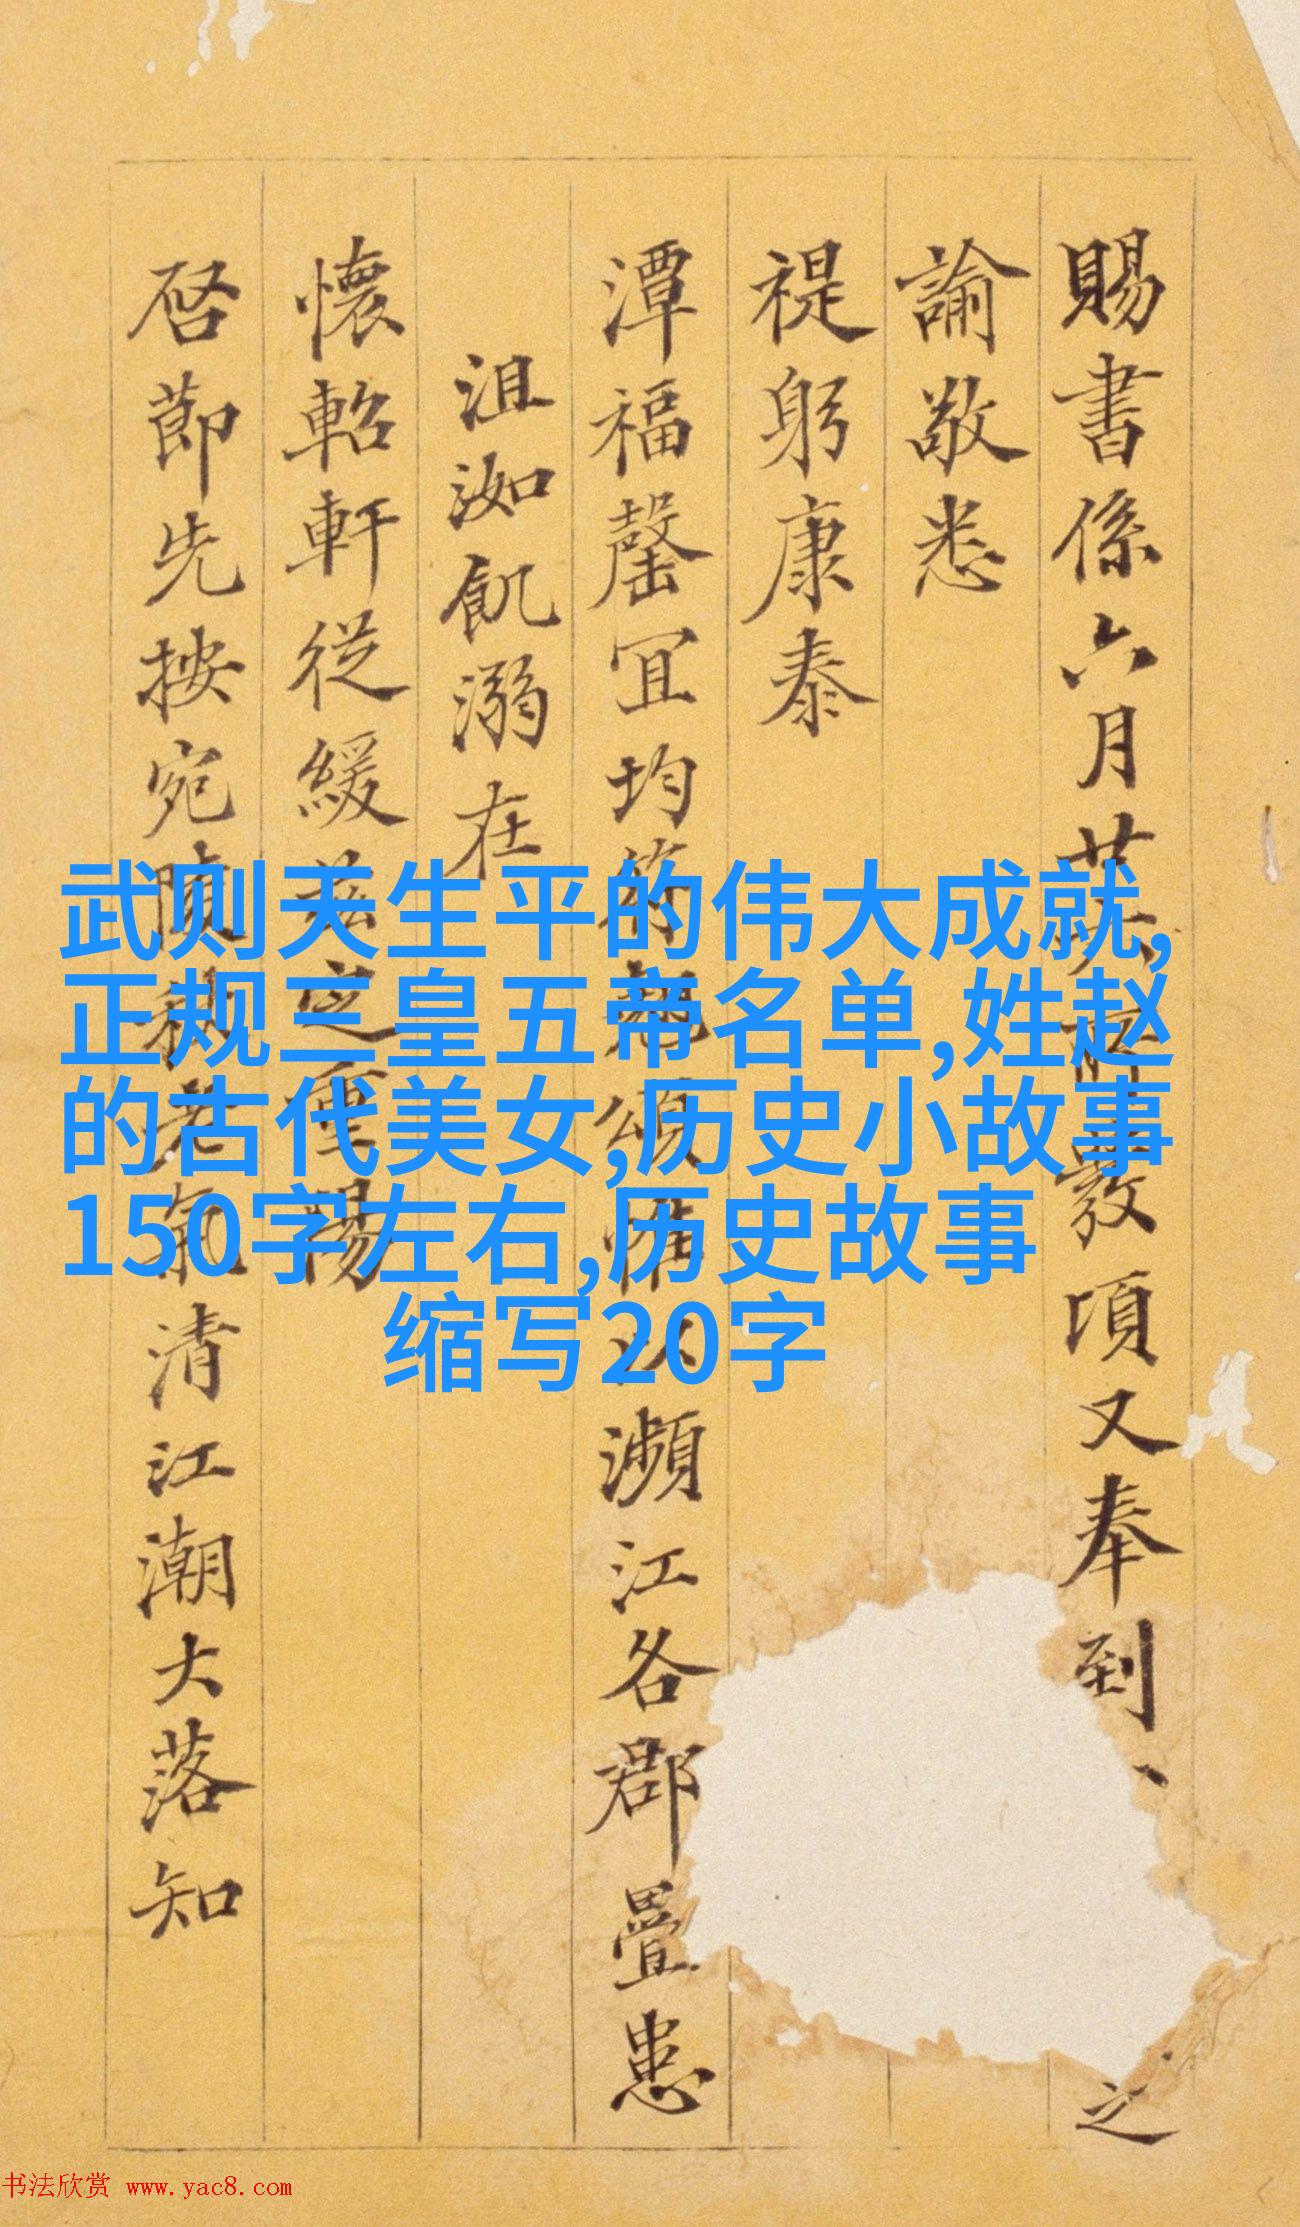 賜書係六月廿六所發項又奉到
之
諭敬悉
禔躬康泰
潭福罄宜均符勉頌惟以瀕江各郡疊患
沮洳飢溺在
懷軺軒從緩
重陽
啓節先按宛陵
清江潮大落知
武则天生平的伟大成就,
正规三皇五帝名单,姓赵
的古代美女,历史小故事
150字左右,历史故事
缩写20字
书法欣赏 www.yac8.com